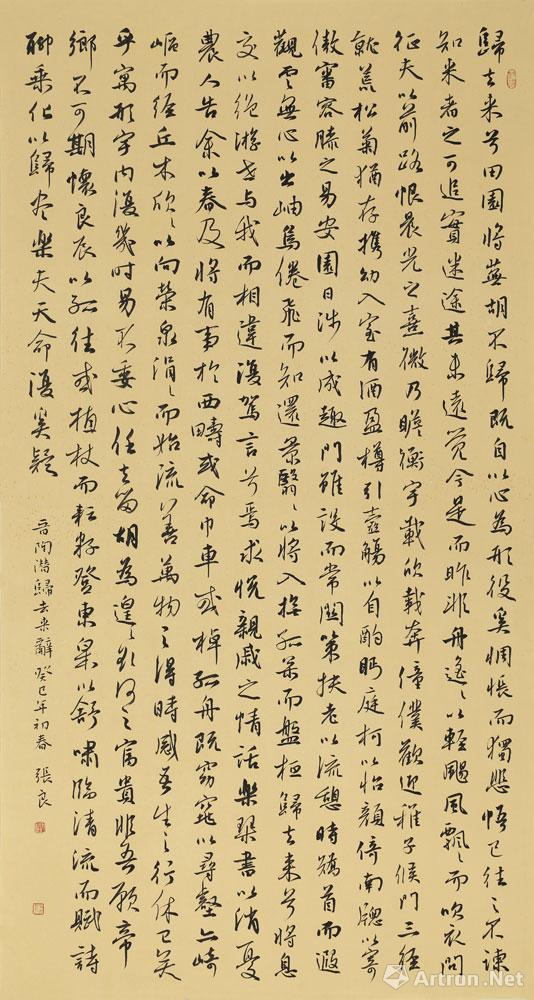 歸去来兮田園將蕪胡不歸既自以心為形役奚惆悵而獨悲悟已往之不諫
知来者之可追實迷途其未遠覺今是而昨非舟遙〻以輕颺風飄〻而吹衣問
征夫以前路恨晨光之熹微乃瞻衡宇載欣載奔僮僕歡迎稚子候門三徑
就荒松菊猶存携幼入室有酒盈樽引壺觴以自酌眄庭柯以怡顏倚南牕以寄
傲審容膝之易安園日涉以成趣門雖設而常關策扶老以流憩時矯首而遐
觀雲無心以出岫鳥倦飛而知還景翳〻以將入撫孤松而盤桓歸去来兮將息
交以絕游世與我而相違復駕言兮焉求悅親戚之情話樂琴書以消憂
農人告余以春及將有事於西疇或命巾車或棹孤舟既窈窕以尋壑亦崎
嶇而經丘木欣〻以向榮泉涓〻而始流善萬物之得時感吾生之行休已矣
乎寓形宇内復幾時曷不委心任去留胡為遑〻欲何之富貴非吾願帝
鄉不可期懷良辰以孤往或植杖而耘耔登東皋以舒嘯臨清流而賦詩
聊乘化以歸盡樂夫天命復奚疑
晉陶潛歸去来辭 癸巳年初春 張良
Artron.Net